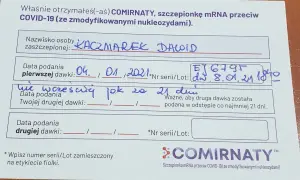 Właśnie otrzymałeś(-aś) COMIRNATY, szczepionkę mRNA przeciw
COVID-19 (ze zmodyfikowanymi nukleozydami).
Nazwisko osoby
zaszczepionej: KACZMAREK DAWID
Data podania
pierwszej dawki: 04 / 01 / 2021 *Nr serii/Lot: EJ 6795
dz 8.01.21 18:40
nie wcześniej jak za 21 dni
Data podania
Twojej drugiej dawki:
Ważne, aby druga dawka została
podana w odstępie co najmniej 21 dni.
Data podania
drugiej dawki: *Nr serii/Lot:
* Wpisz numer serii/Lot zamieszczony
na etykiecie fiolki.
COMIRNATY